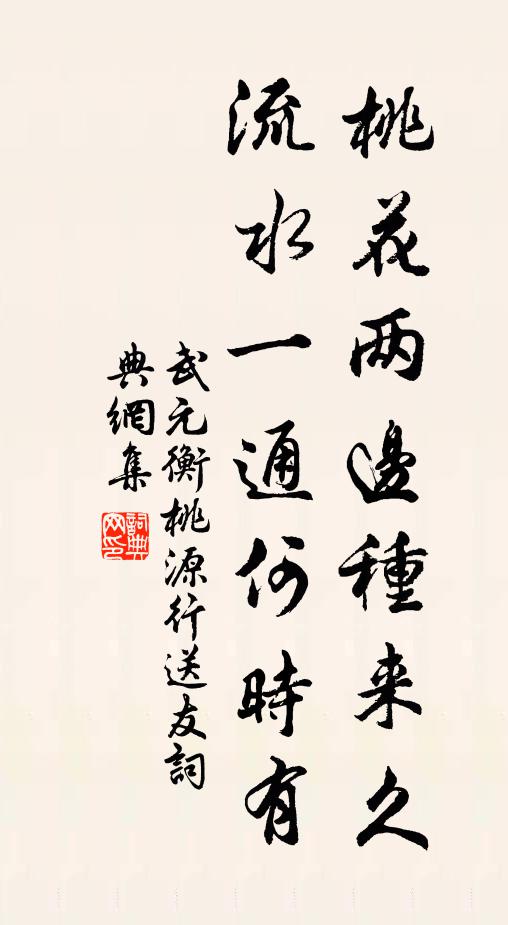 桃花两邊種来久
流水一通何時有
武元衡桃源行送友詞
典網集
詞典
网印